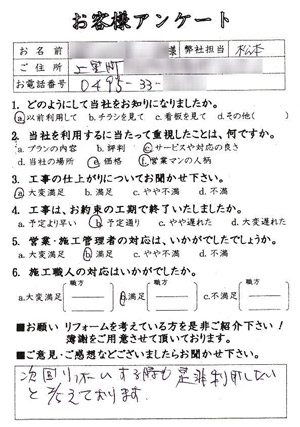 お客様アンケート
お名前 様 弊社担当 松本
ご住所 上里町
お電話番号 0495-33-
1. どのようにして当社をお知りになりましたか。
a.以前利用して b.チラシを見て c.看板を見て d.その他( )
2. 当社を利用するに当たって重視したことは、何ですか。
a.プランの内容 b.評判 c.サービスや対応の良さ
d.当社の場所 e.価格 f.営業マンの人柄
3. 工事の仕上がりについてお聞かせ下さい。
a.大変満足 b.満足 c.やや不満 d.不満
4. 工事は、お約束の工期で終了いたしましたか。
a.予定より早い b.予定通り c.やや遅れた d.大変遅れた
5. 営業・施工管理者の対応は、いかがでしたでしょうか。
a.大変満足 b.満足 c.やや不満 d.不満
6. 施工職人の対応はいかがでしたか。
a.大変満足 職方 b.満足 職方 c.不満 職方
■お願い リフォームを考えている方を是非ご紹介下さい!
薄謝をご用意させて頂いております。
■ご意見・ご感想などございましたらお聞かせ下さい。
次回リホームする時も是非利用したい
と考えております.